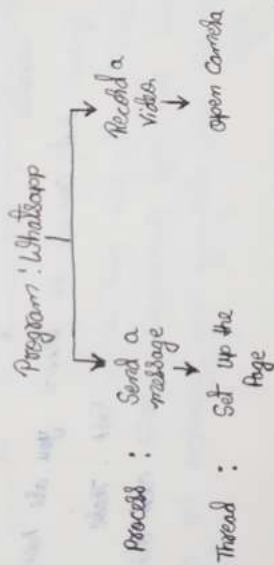 Program : Whatsapp
Process : Send a message
Record a Video
Thread : Set up the Page
open Camera